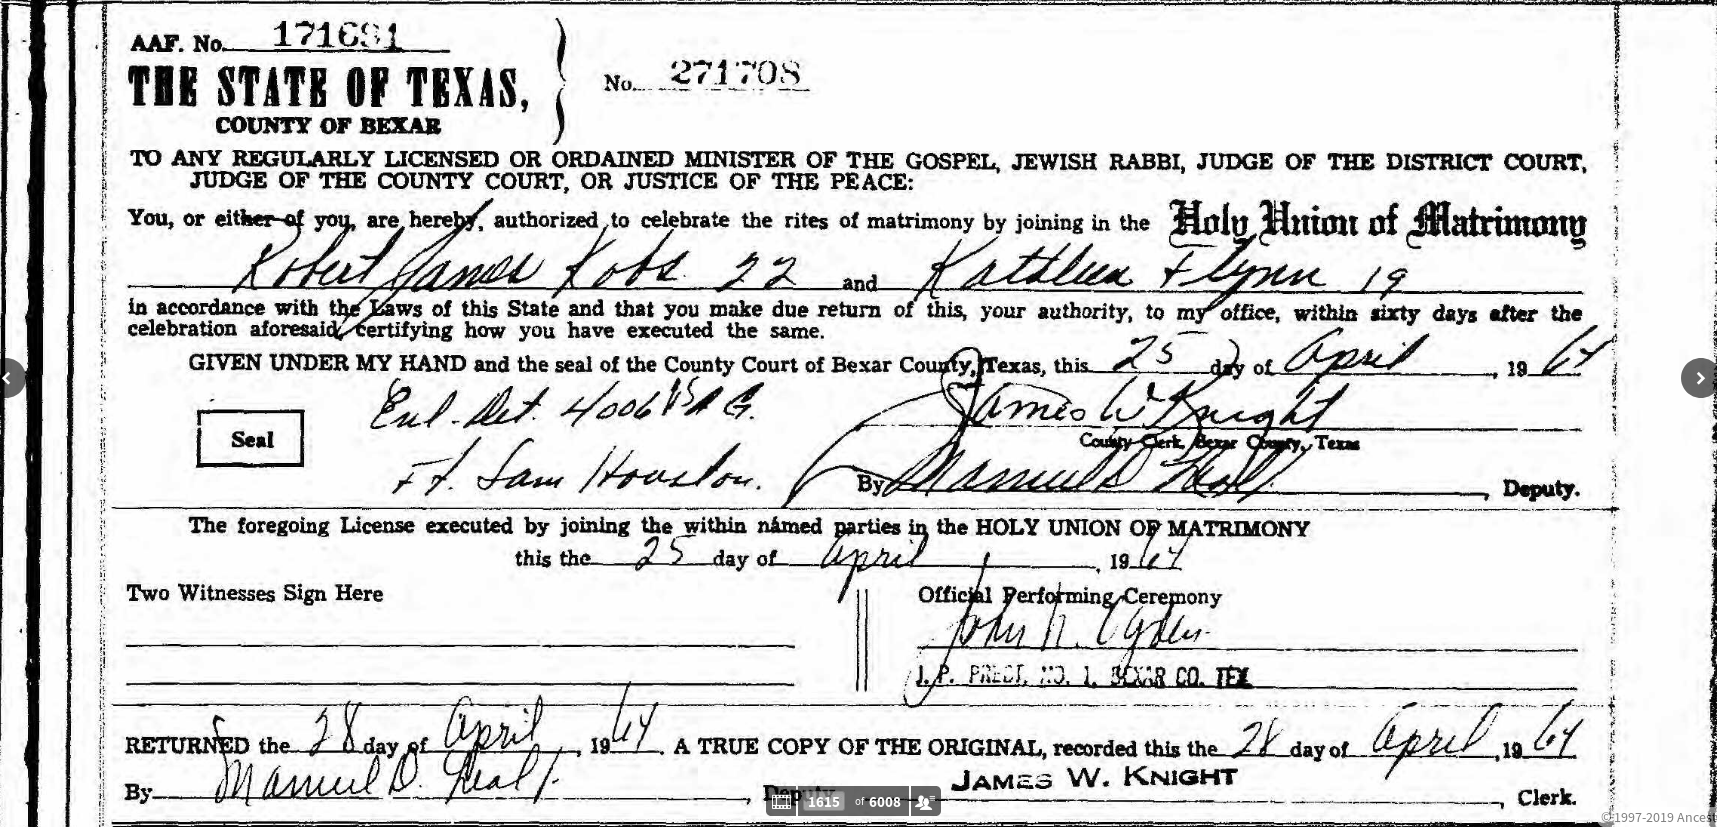 AAF. No. 171681
THE STATE OF TEXAS,
COUNTY OF BEXAR
No. 271708
TO ANY REGULARLY LICENSED OR ORDAINED MINISTER OF THE GOSPEL, JEWISH RABBI, JUDGE OF THE DISTRICT COURT,
JUDGE OF THE COUNTY COURT, OR JUSTICE OF THE PEACE:
You, or either of you, are hereby, authorized to celebrate the rites of matrimony by joining in the Holy Union of Matrimony
Robert James Kobs 22 and Kathleen Flynn 19
in accordance with the Laws of this State and that you make due return of this, your authority, to my office, within sixty days after the
celebration aforesaid, certifying how you have executed the same.
GIVEN UNDER MY HAND and the seal of the County Court of Bexar County, Texas, this 25 day of April, 1964
Seal
Enl. Det. 4006
James W Knight
County Clerk, Bexar County, Texas
Ft. Sam Houston.
By Manuel D. Leal, Deputy.
The foregoing License executed by joining the within named parties in the HOLY UNION OF MATRIMONY
this the 25 day of April, 1964
Two Witnesses Sign Here
Official Performing Ceremony
John N. Ogden
J. P. PRECT. NO. 1, BEXAR CO. TEX
RETURNED the 28 day of April, 1964. A TRUE COPY OF THE ORIGINAL, recorded this the 28 day of April, 1964
By Manuel D. Leal, Deputy JAMES W. KNIGHT, Clerk.
1615 of 6008
©1997-2019 Ancest